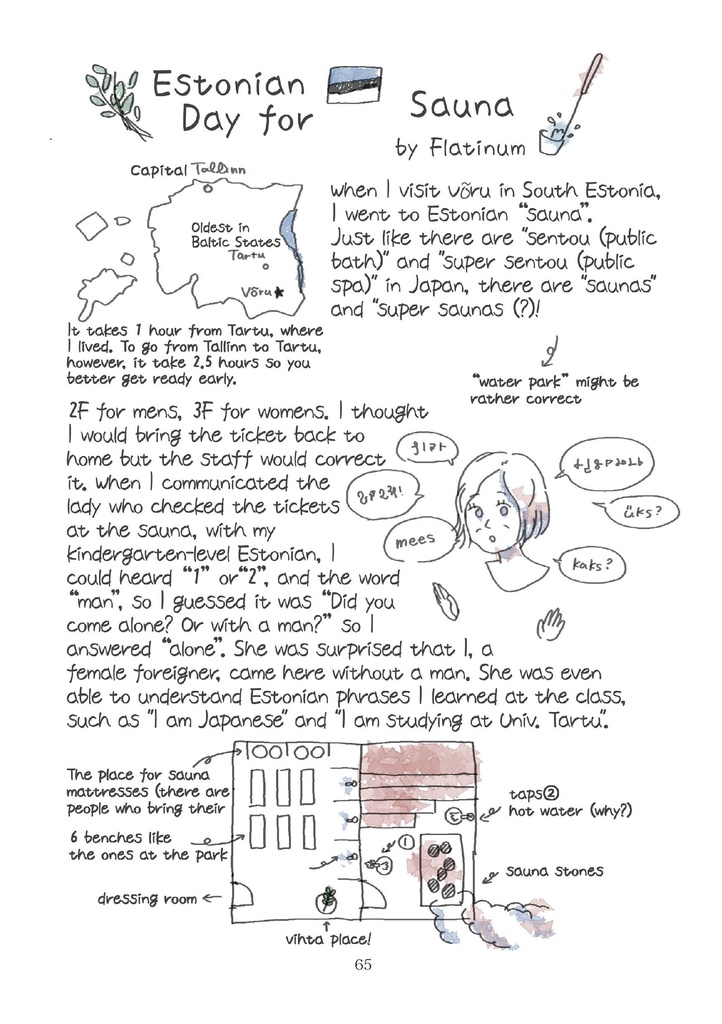 Estonian
Day for
Sauna
by Flatinum
Capital Tallinn
Oldest in
Baltic States
Tartu
Võru
when I visit võru in South Estonia,
I went to Estonian "sauna".
Just like there are "sentou (public
bath)" and "super sentou (public
spa)" in Japan, there are "saunas"
and "super saunas (?)!
It takes 1 hour from Tartu, where
I lived. To go from Tallinn to Tartu,
however, it take 2.5 hours so you
better get ready early.
"water park" might be
rather correct
2F for mens, 3F for womens. I thought
I would bring the ticket back to
home but the staff would correct
it. when I communicated the
lady who checked the tickets
at the sauna, with my
kindergarten-level Estonian, I
could heard "1" or "2", and the word
"man", so I guessed it was "Did you
come alone? Or with a man?" so I
answered "alone". She was surprised that I, a
female foreigner, came here without a man. She was even
able to understand Estonian phrases I learned at the class,
such as "I am Japanese" and "I am studying at Univ. Tartu".
mees
üks?
kaks?
The place for sauna
mattresses (there are
people who bring their
6 benches like
the ones at the park
dressing room
vihta place!
①
taps②
hot water (why?)
sauna stones
65